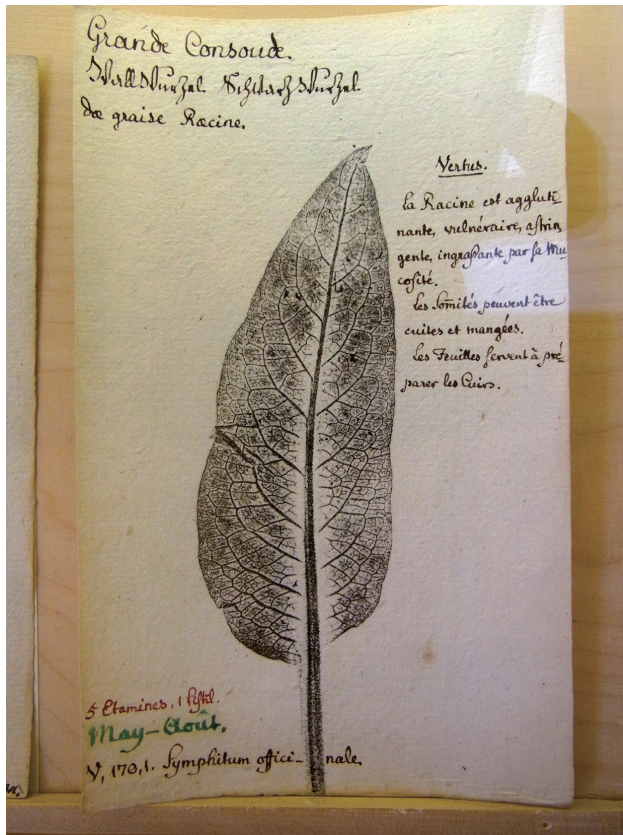 Grande Consoude.
Wallwurzel. Schwarzwurzel
dæ graise Racine.
Vertus.
la Racine est aggluti-
nante, vulnéraire, astrin
gente, ingraſsante par ſa Mu
coſité.
Les Somités peuvent être
cuites et mangées.
Les Feuilles ſervent à pré-
parer les Cuirs.
5 Etamines, 1 Piſtil.
May-Août.
V, 170, 1. Symphitum offici-nale.